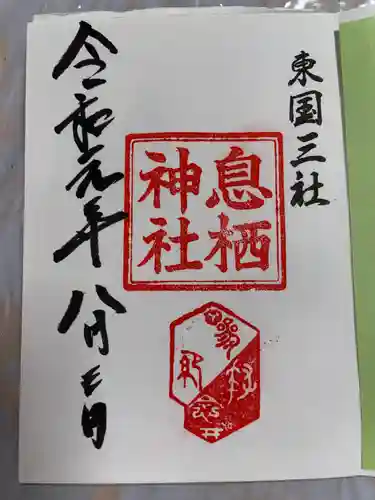 東国三社
息栖
神社
令和元年 八月七日